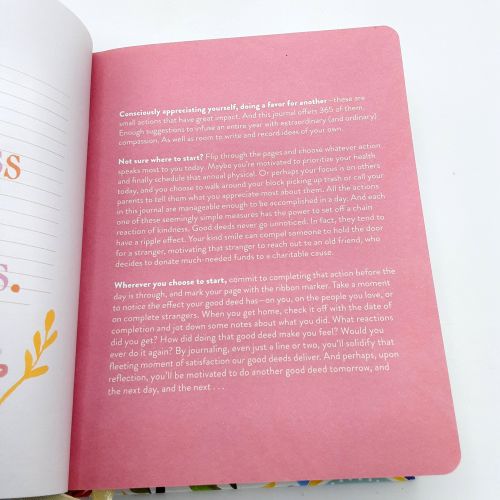 SS
S.
Consciously appreciating yourself, doing a favor for another—these are
small actions that have great impact. And this journal offers 365 of them.
Enough suggestions to infuse an entire year with extraordinary (and ordinary)
compassion. As well as room to write and record ideas of your own.
Not sure where to start? Flip through the pages and choose whatever action
speaks most to you today. Maybe you're motivated to prioritize your health
and finally schedule that annual physical. Or perhaps your focus is on others
today, and you choose to walk around your block picking up trash or call your
parents to tell them what you appreciate most about them. All the actions
in this journal are manageable enough to be accomplished in a day. And each
one of these seemingly simple measures has the power to set off a chain
reaction of kindness. Good deeds never go unnoticed. In fact, they tend to
have a ripple effect. Your kind smile can compel someone to hold the door
for a stranger, motivating that stranger to reach out to an old friend, who
decides to donate much-needed funds to a charitable cause.
Wherever you choose to start, commit to completing that action before the
day is through, and mark your page with the ribbon marker. Take a moment
to notice the effect your good deed has—on you, on the people you love, or
on complete strangers. When you get home, check it off with the date of
completion and jot down some notes about what you did. What reactions
did you get? How did doing that good deed make you feel? Would you
ever do it again? By journaling, even just a line or two, you'll solidify that
fleeting moment of satisfaction our good deeds deliver. And perhaps, upon
reflection, you'll be motivated to do another good deed tomorrow, and
the next day, and the next . . .